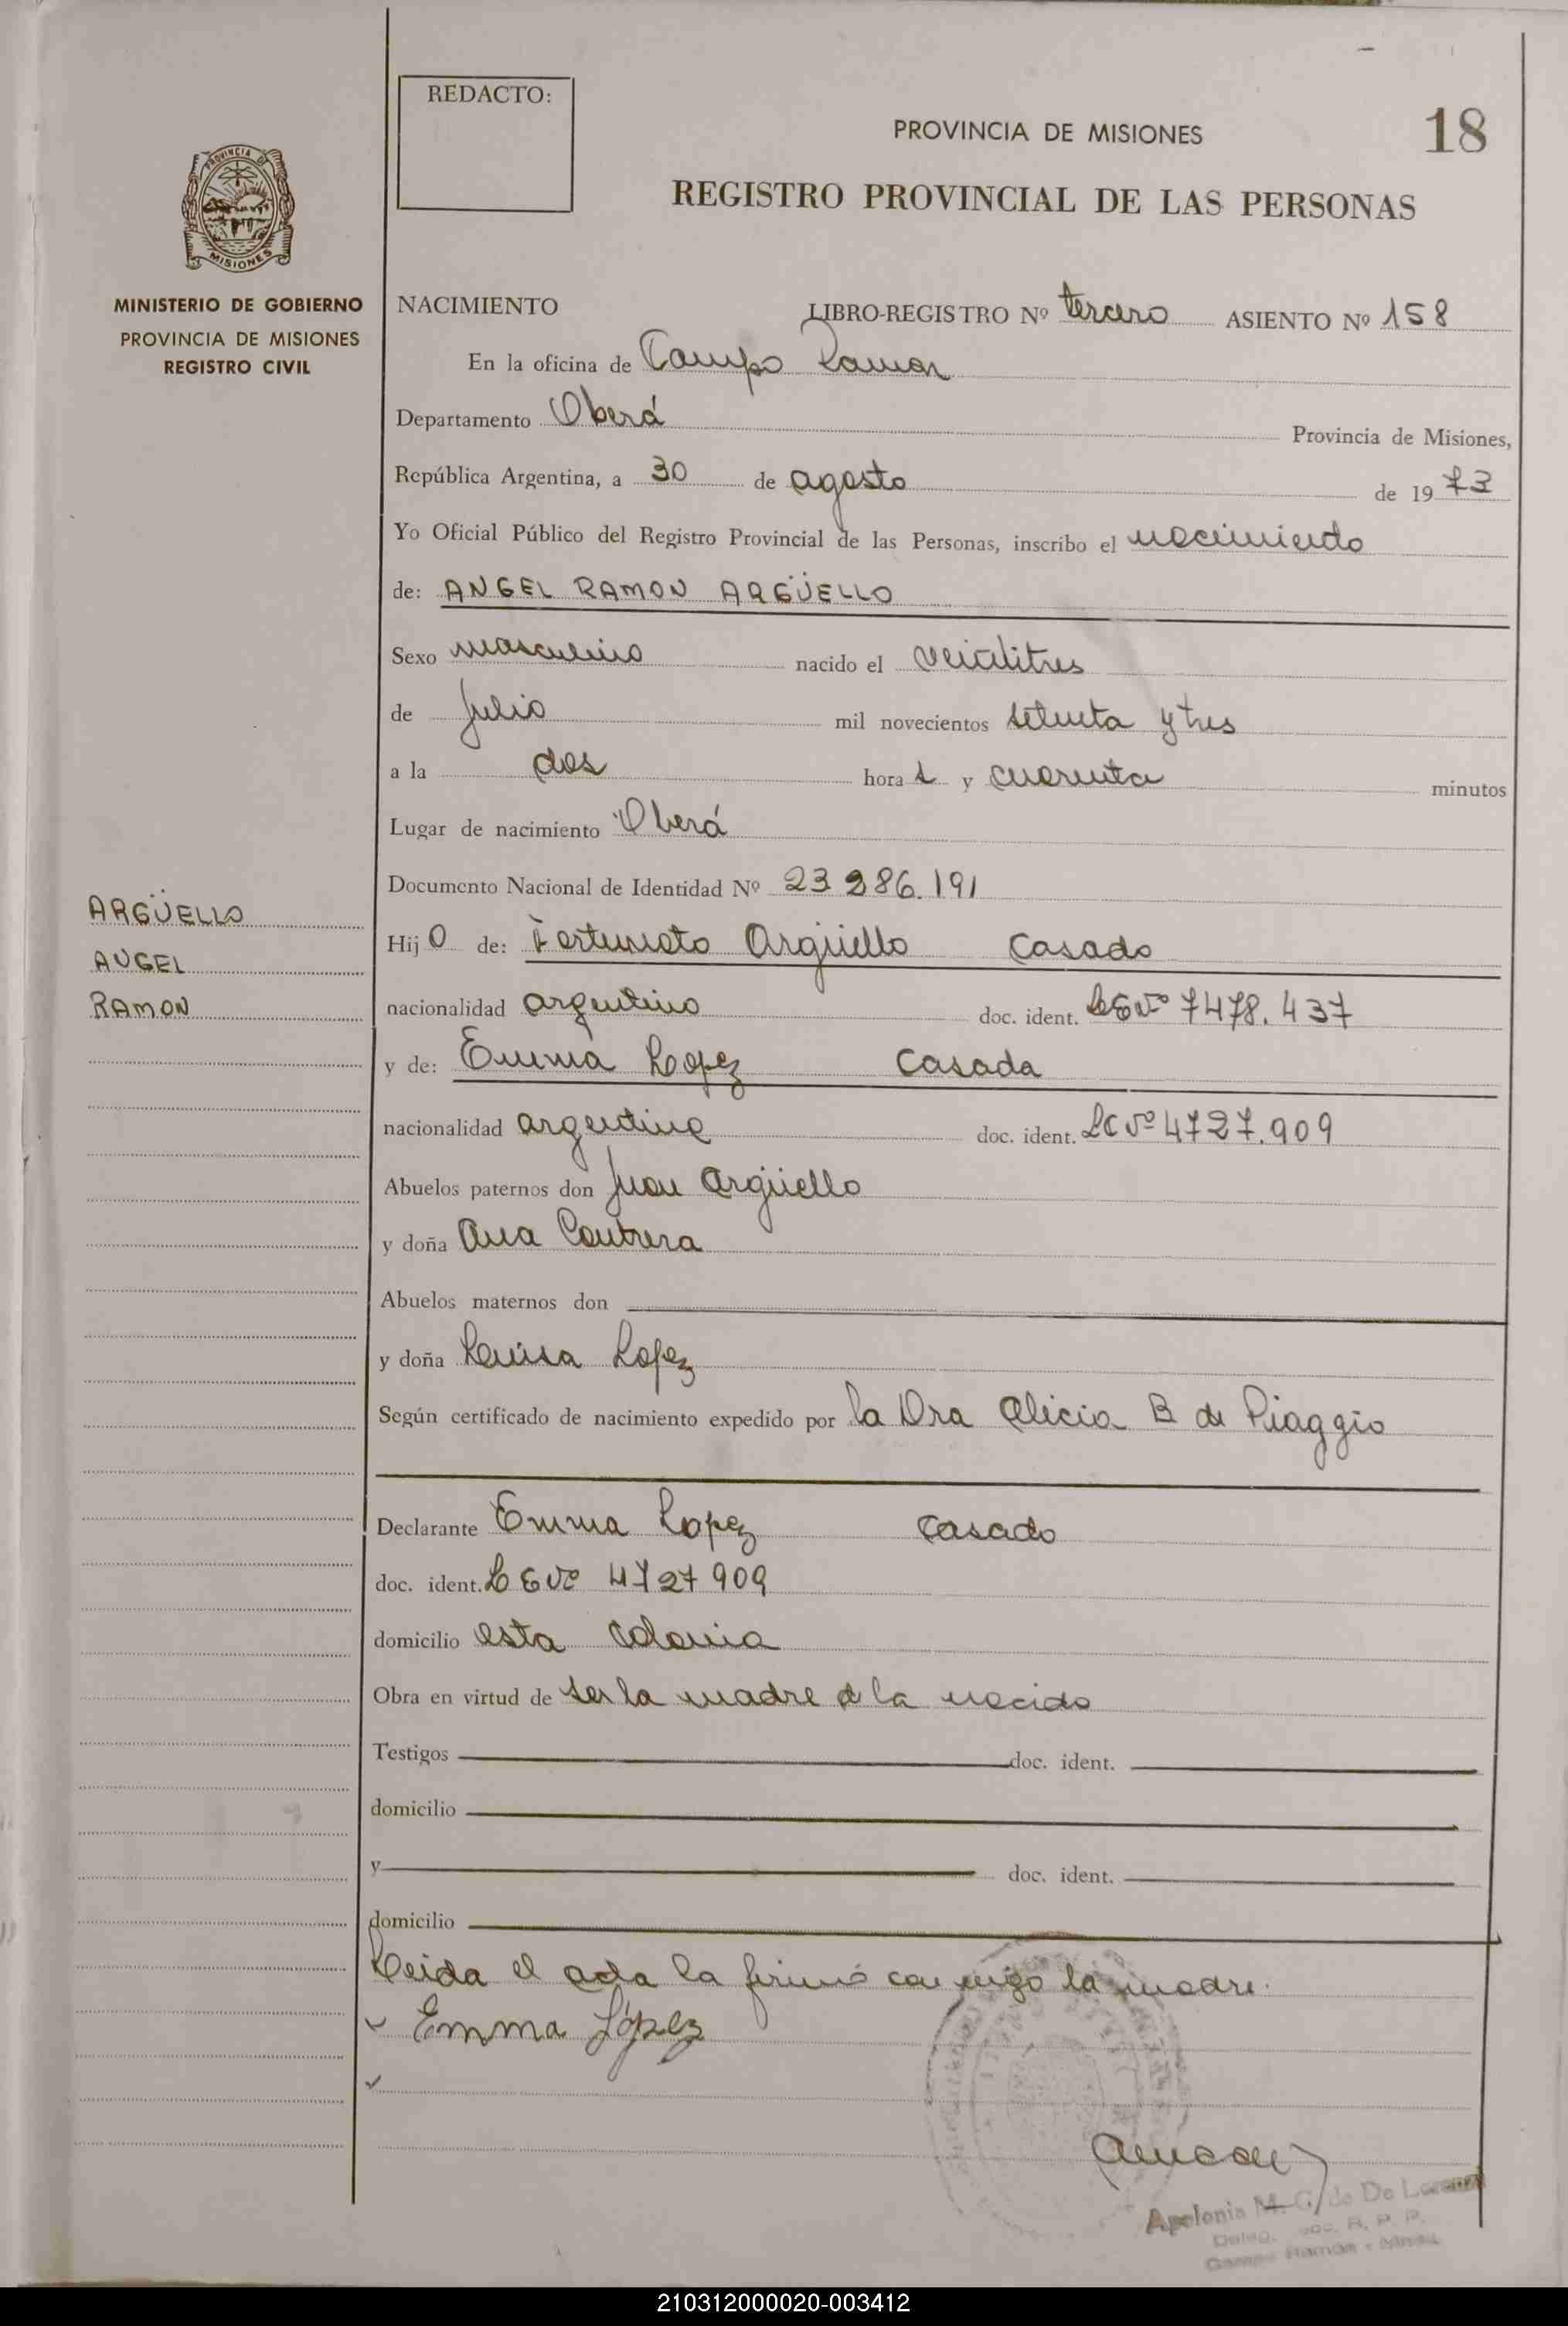 REDACTO:
PROVINCIA DE MISIONES
18
REGISTRO PROVINCIAL DE LAS PERSONAS
PROVINCIA D
MISIONES
MINISTERIO DE GOBIERNO
PROVINCIA DE MISIONES
REGISTRO CIVIL
NACIMIENTO LIBRO-REGISTRO Nº tercero ASIENTO Nº 158
En la oficina de Campo Ramon
Departamento Oberá Provincia de Misiones,
República Argentina, a 30 de agosto de 1973
Yo Oficial Público del Registro Provincial de las Personas, inscribo el nacimiento
de: ANGEL RAMON ARGÜELLO
Sexo masculino nacido el veintitres
de Julio mil novecientos setenta y tres
a la dos hora s y cuarenta minutos
Lugar de nacimiento Oberá
Documento Nacional de Identidad Nº 23 286.191
ARGÜELLO
ANGEL
RAMON
Hijo de: Fortunato Argüello Casado
nacionalidad argentino doc. ident. LE Nº 7478.437
y de: Emma Lopez Casada
nacionalidad argentina doc. ident. LC Nº 4727.909
Abuelos paternos don Juan Argüello
y doña Ana Contrera
Abuelos maternos don
y doña Luisa Lopez
Según certificado de nacimiento expedido por la Dra Alicia B de Piaggio
Declarante Emma Lopez casado
doc. ident. LE Nº 4727909
domicilio esta colonia
Obra en virtud de ser la madre d la nacido
Testigos doc. ident.
domicilio
y doc. ident.
domicilio
Leida el acta la firmó con migo la madre.
Emma López
Apolonia M. G. de De
Campo Ramón - Mnes.
210312000020-003412